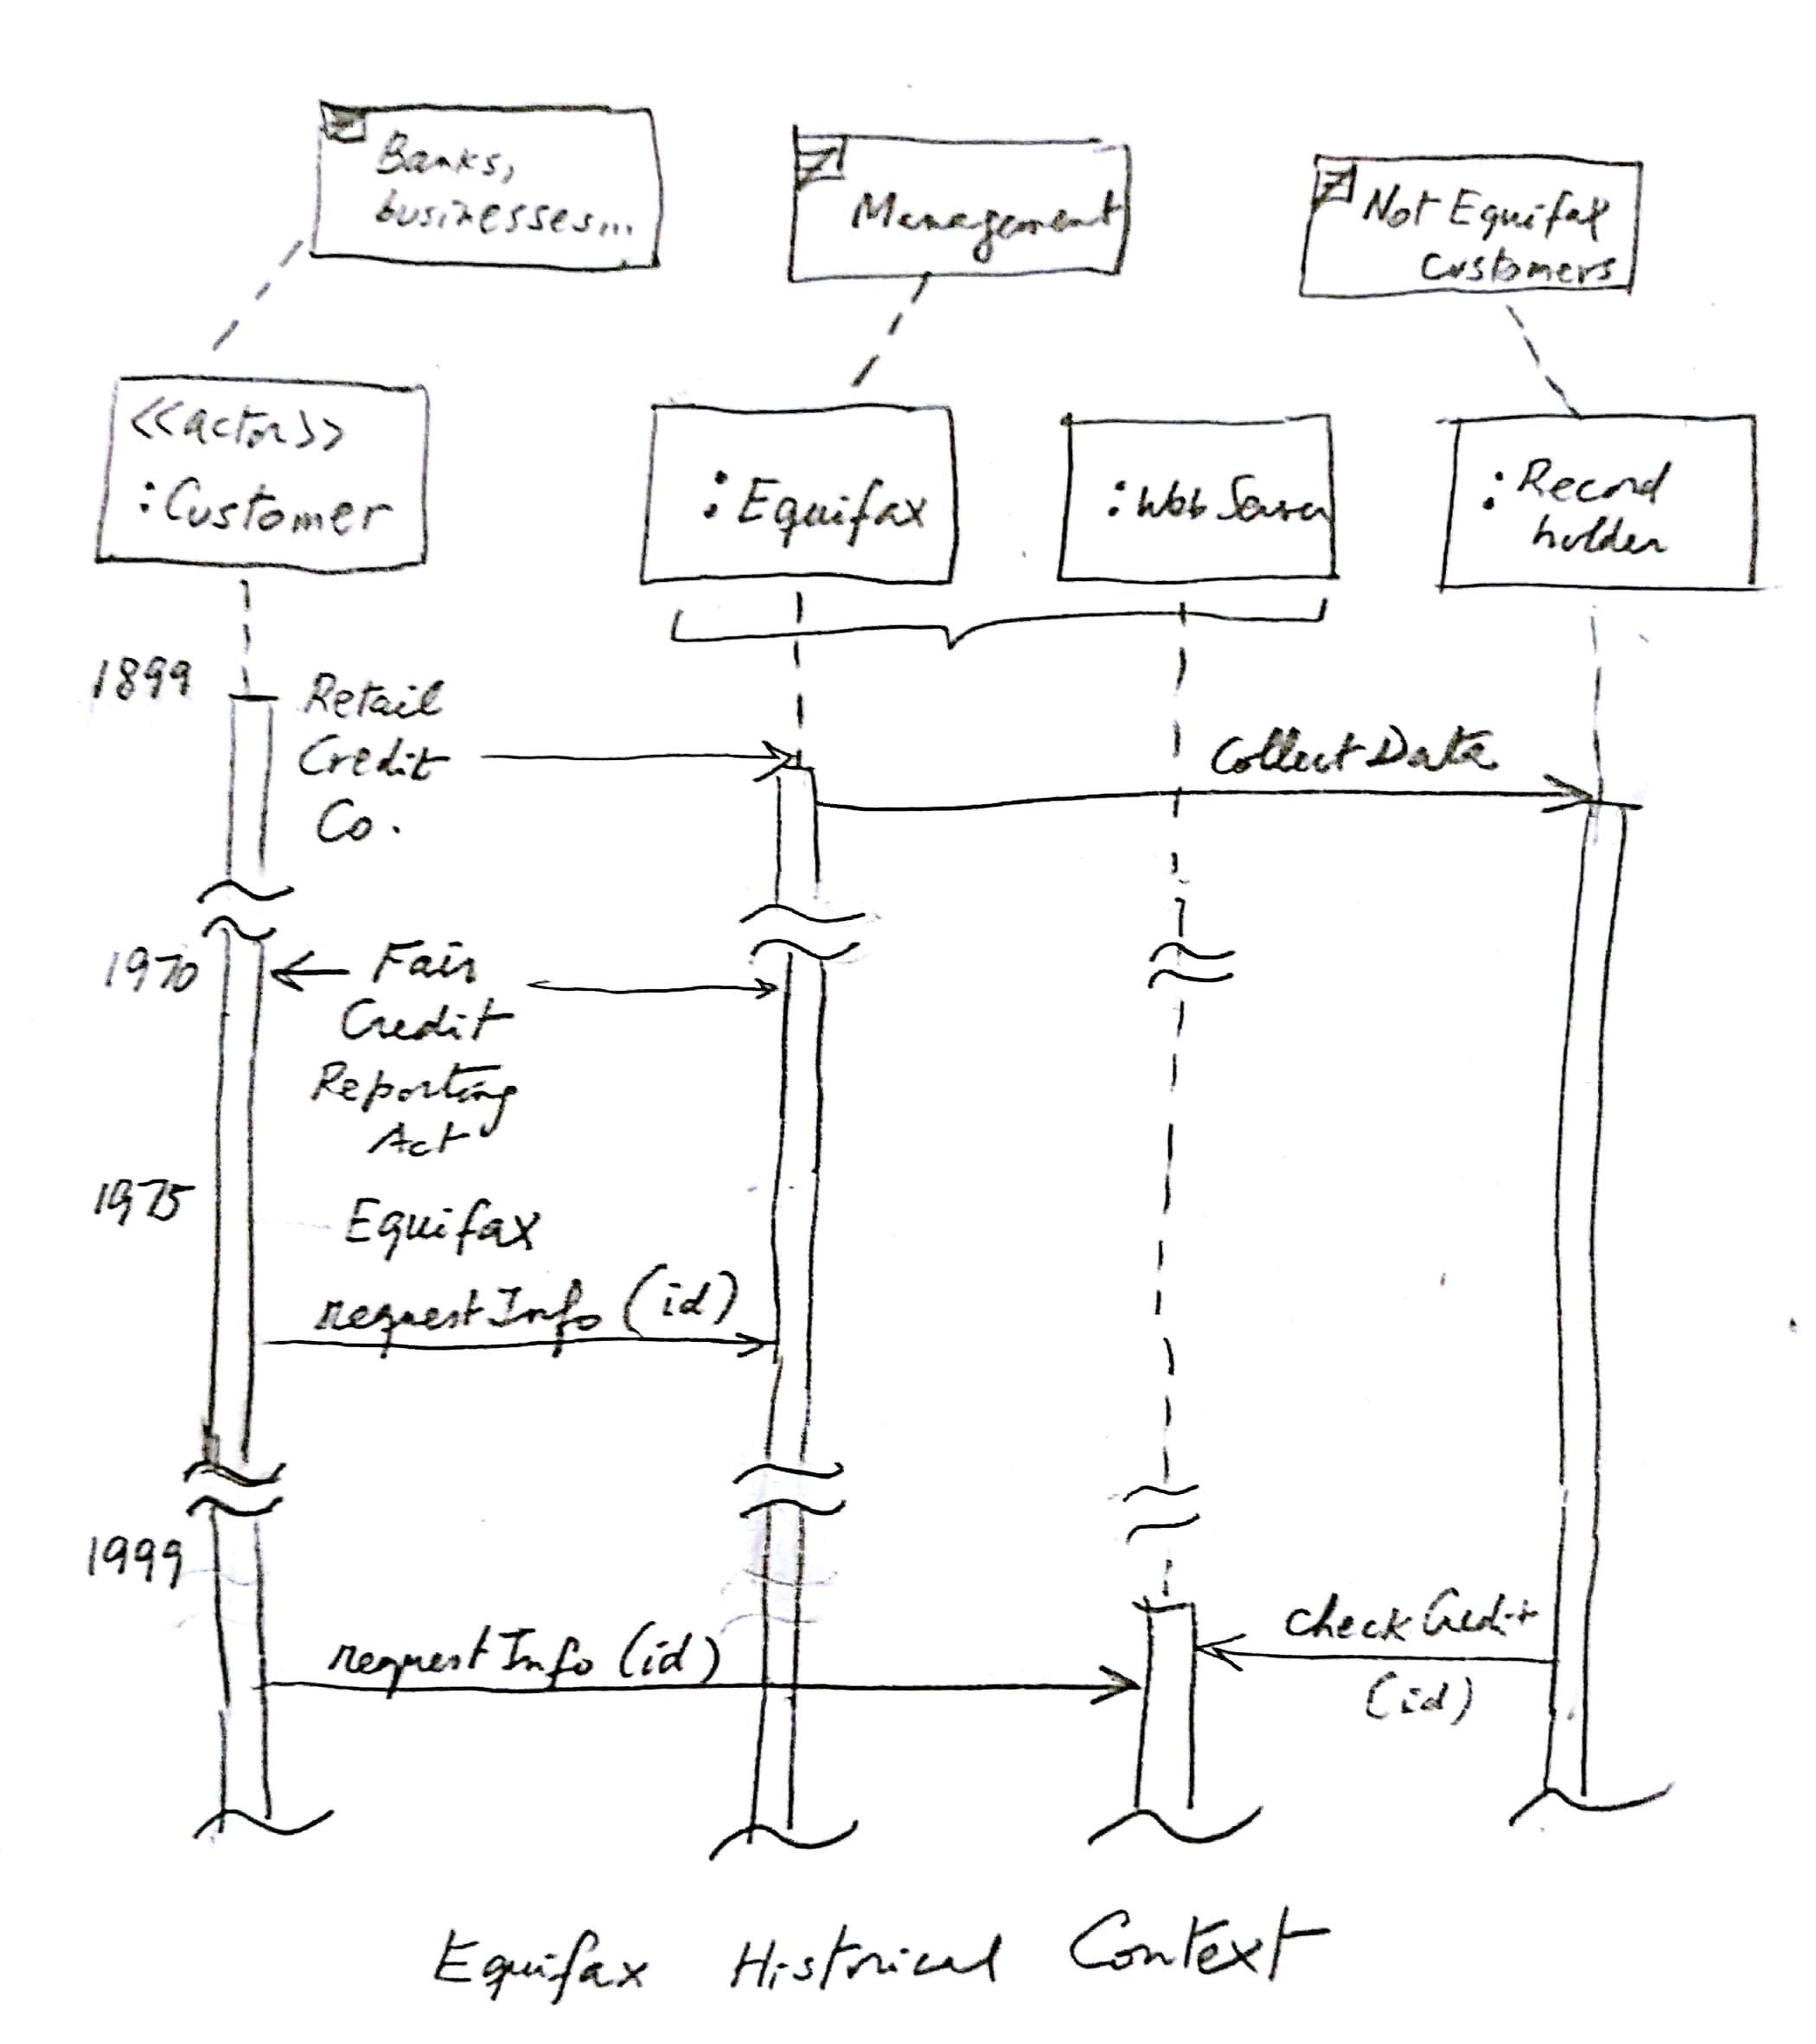 Banks,
businesses...
Management
Not Equifax
customers
<<actor>>
:Customer
:Equifax
:Web Server
:Record
holder
1899
Retail
Credit
Co.
Collect Data
1970
Fair
Credit
Reporting
Act
1975
Equifax
requestInfo (id)
1999
requestInfo (id)
checkCredit
(id)
Equifax Historical Context